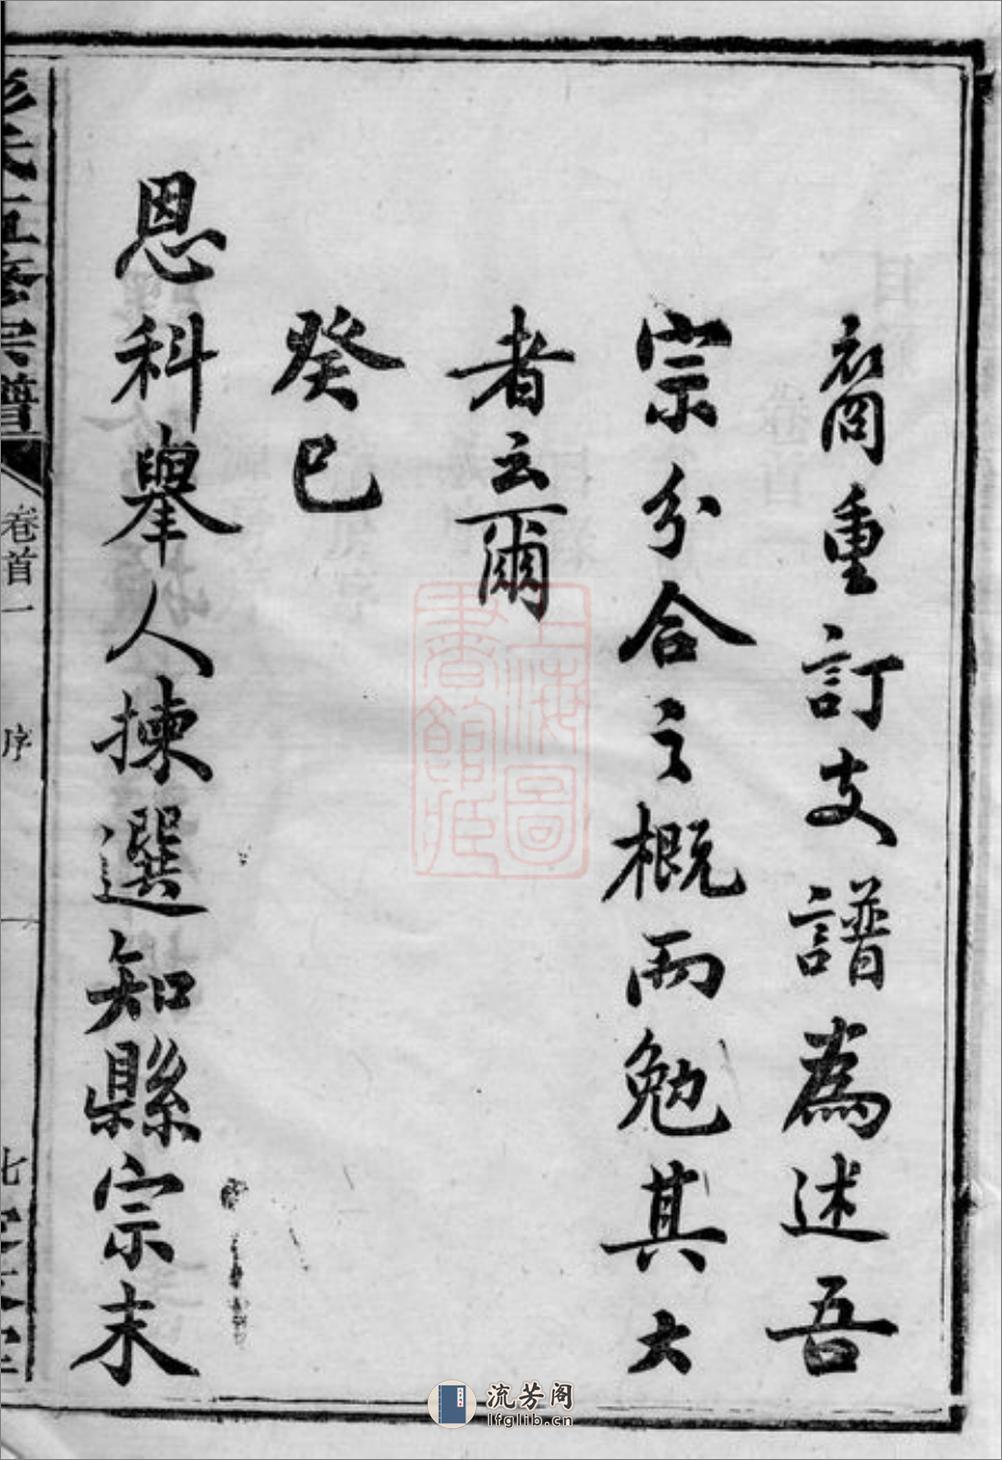 裔重訂支譜為述吾
宗分合之概而勉其大
者云爾
癸巳
恩科舉人揀選知縣宗末
氏五修宗譜
卷首一
序
七
上海圖
書館藏
流芳阁
lfglib.cn